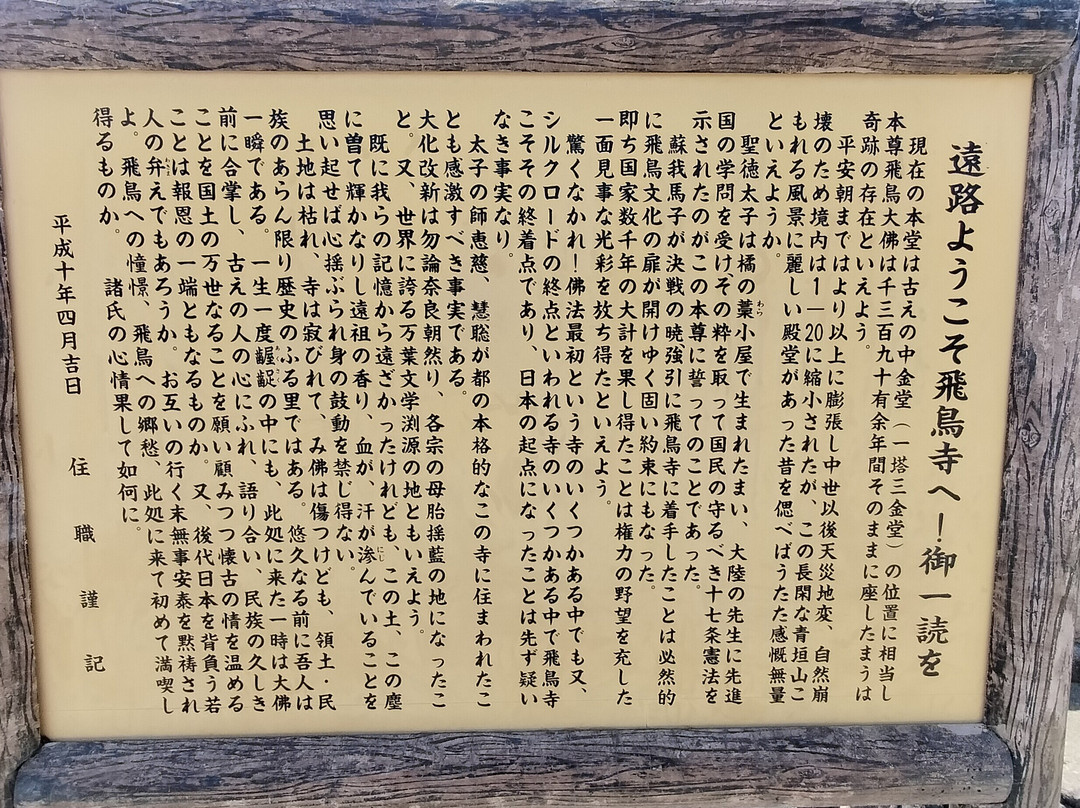 遠路ようこそ飛鳥寺へ!御一読を
現在の本堂は古えの中金堂(一塔三金堂)の位置に相当し
本尊飛鳥大佛は千三百九十有余年間そのままに座したまうは
奇跡の存在といえよう。
平安朝まではより以上に膨張し中世以後天災地変、自然崩
壊のため境内は1―20に縮小されたが、この長閑な青垣山こ
もれる風景に麗しい殿堂があった昔を偲べばうたた感慨無量
といえようか。
聖徳太子は橘の藁小屋で生まれたまい、大陸の先生に先進
国の学問を受けその粋を取って国民の守るべき十七条憲法を
示されたのがこの本尊に誓ってのことであった。
蘇我馬子が決戦の暁強引に飛鳥寺に着手したことは必然的
に飛鳥文化の扉が開けゆく固い約束にもなった。
即ち国家数千年の大計を果し得たことは権力の野望を充した
一面見事な光彩を放ち得たといえよう。
驚くなかれ!佛法最初という寺のいくつかある中でも又、
シルクロードの終点といわれる寺のいくつかある中で飛鳥寺
こそその終着点であり、日本の起点になったことは先ず疑い
なき事実なり。
太子の師恵慈、慧聡が都の本格的なこの寺に住まわれたこ
とも感激すべき事実である。
大化改新は勿論奈良朝然り、各宗の母胎揺藍の地になったこ
と。又、世界に誇る万葉文学渕源の地ともいえよう。
既に我らの記憶から遠ざかったけれども、この土、この塵
に曽て輝かなりし遠祖の香り、血が、汗が滲んでいることを
思い起せば心揺ぶられ身の鼓動を禁じ得ない。
土地は枯れ、寺は寂びれて、み佛は傷つけども、領土・民
族のあらん限り歴史のふる里ではある。悠久なる前に吾人は
一瞬である。一生一度齷齪の中にも、此処に来た一時は大佛
前に合掌し、古えの人の心にふれ、語り合い、民族の久しき
ことを国土の万世なることを願い顧みつつ懐古の情を温める
ことは報恩の一端ともなるものか。又、後代日本を背負う若
人の弁えでもあろうか。お互いの行く末無事安泰を黙祷され
よ。飛鳥への憧憬、飛鳥への郷愁、此処に来て初めて満喫し
得るものか。 諸氏の心情果して如何に。
平成十年四月吉日
住職謹記